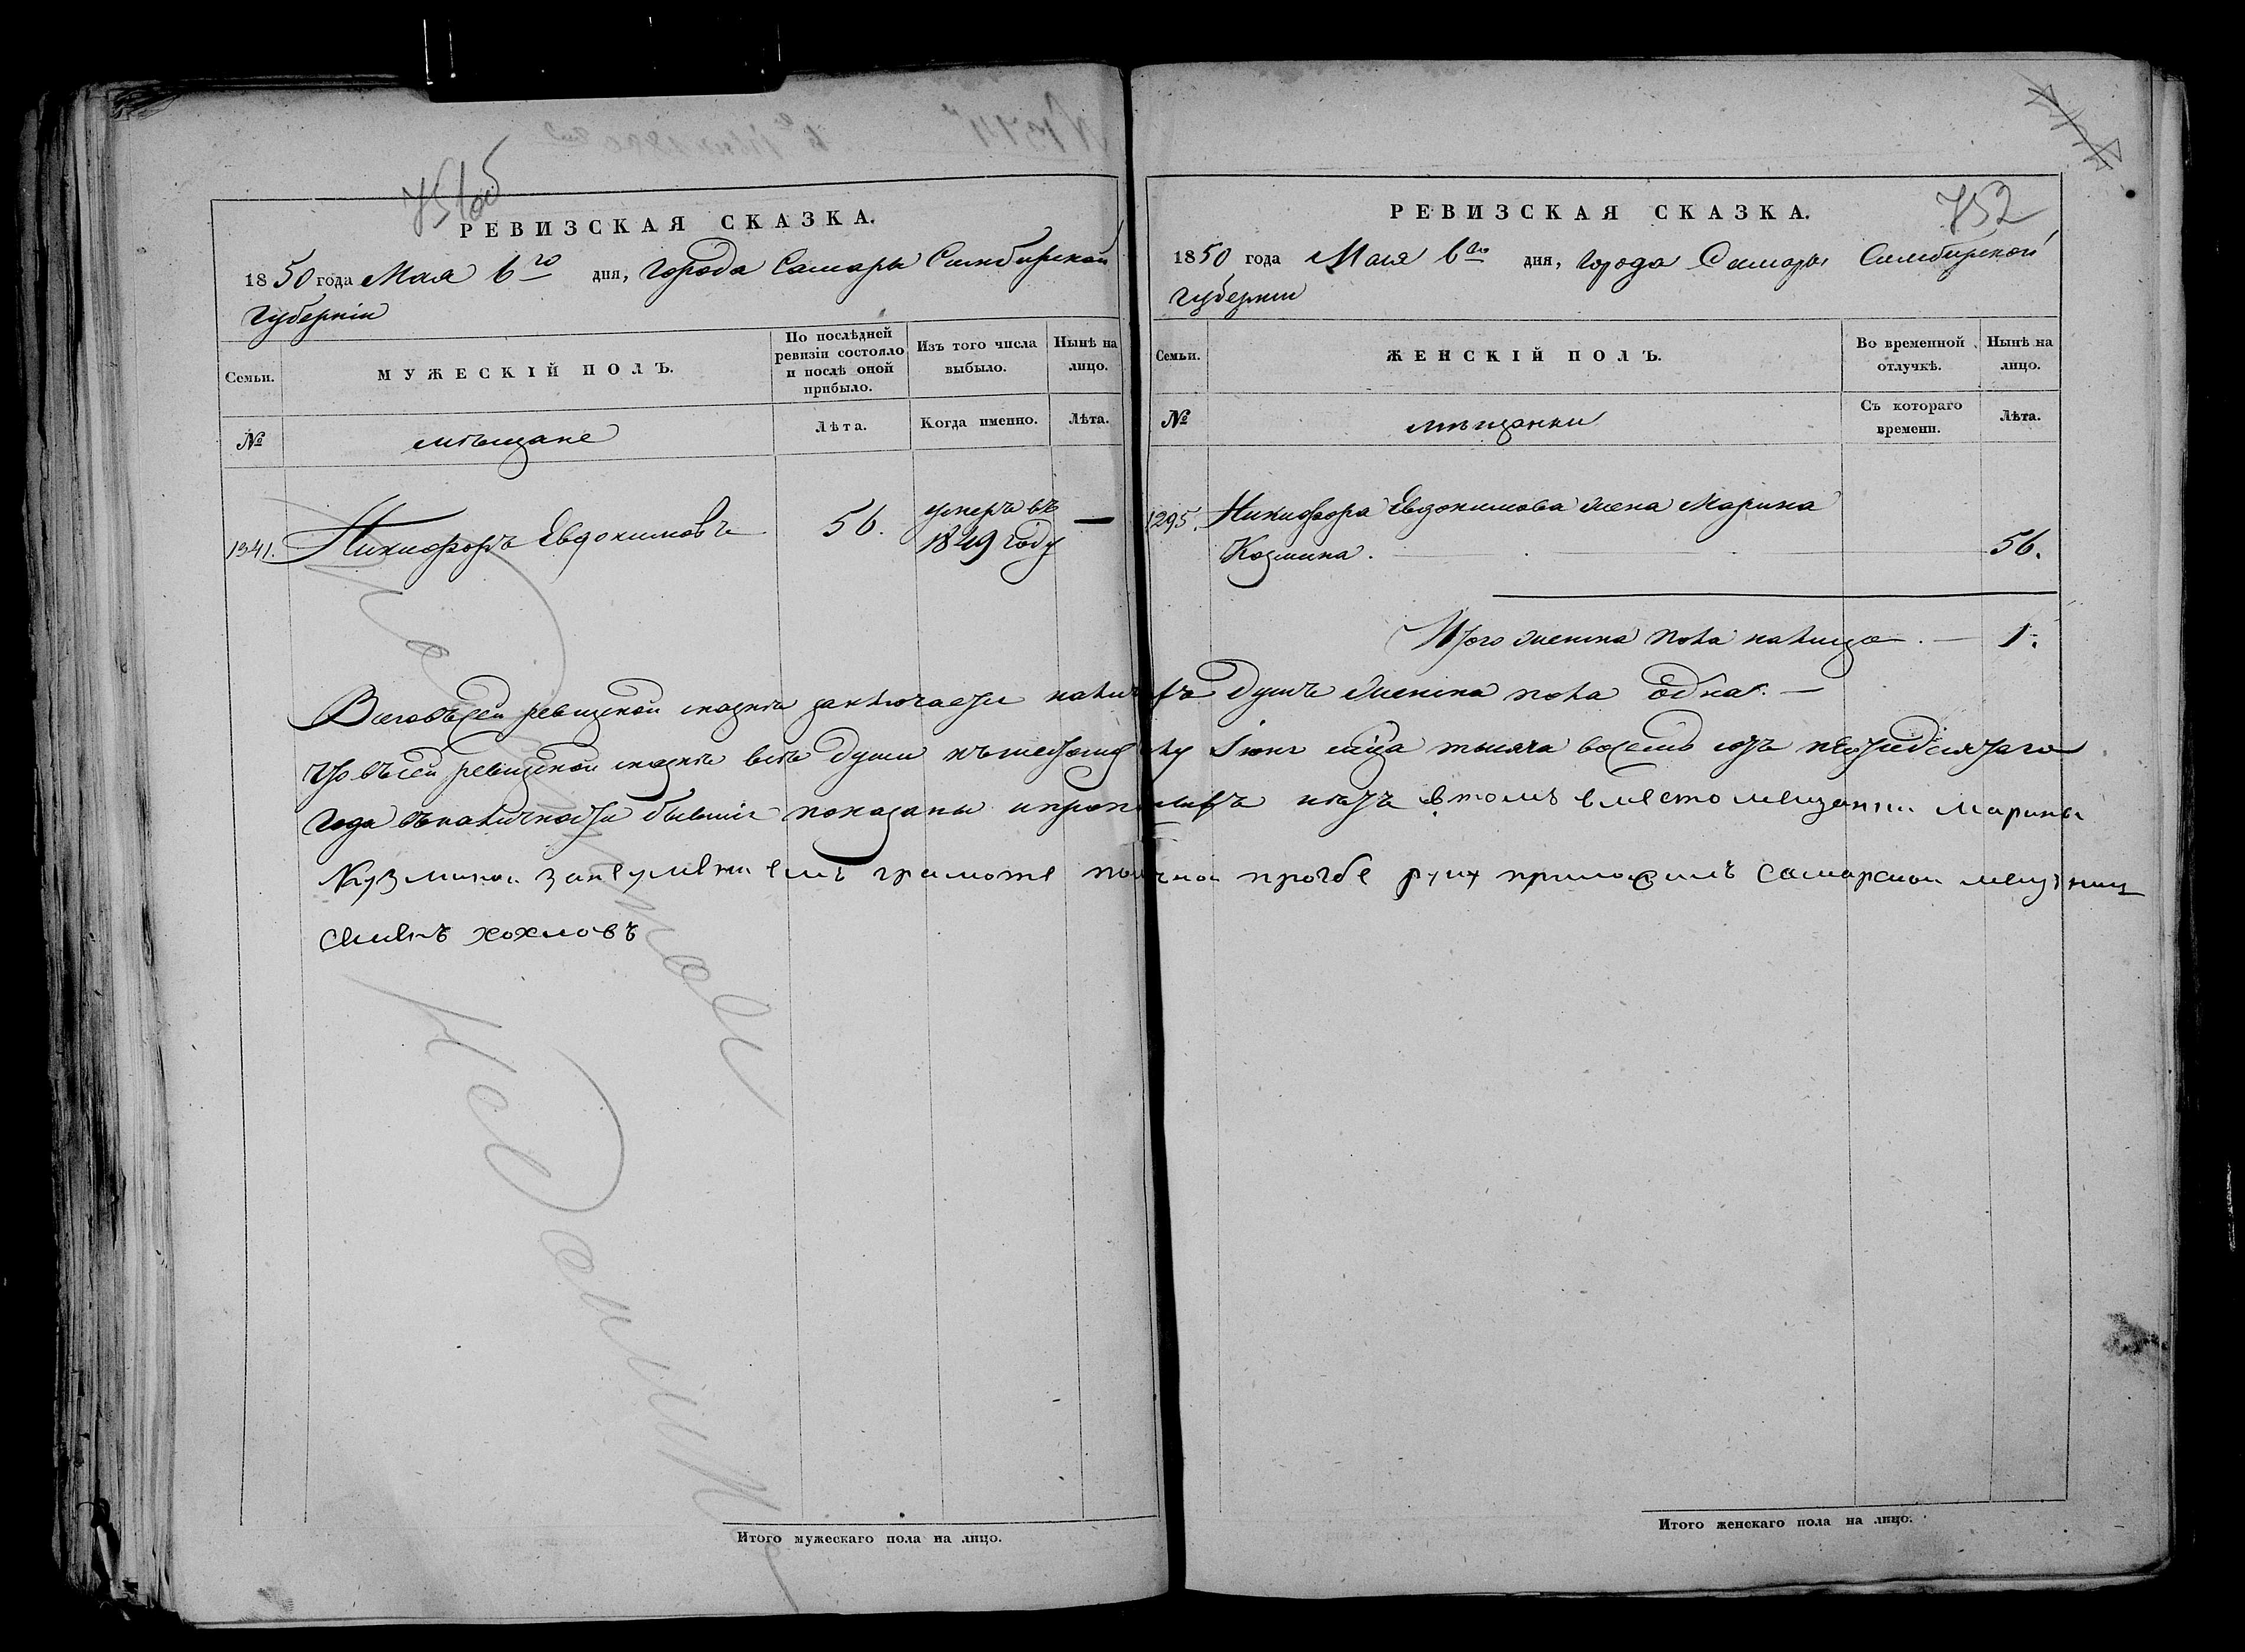 751об
РЕВИЗСКАЯ СКАЗКА.
1850 года Мая 6го дня, города Самары Симбирской
губерніи
Семьи.
МУЖЕСКІЙ ПОЛЪ.
По послѣдней
ревизіи состояло
и послѣ оной
прибыло.
Изъ того числа
выбыло.
Нынѣ на
лицо.
№
мѣщане
Лѣта.
Когда именно.
Лѣта.
1341. Никифоръ Евдокимовъ 56. умеръ въ
1849 году —
Итого мужескаго пола на лицо.
752
РЕВИЗСКАЯ СКАЗКА.
1850 года Мая 6го дня, города Самары Симбирской
губерніи
Семьи.
ЖЕНСКІЙ ПОЛЪ.
Во временной
отлучкѣ.
Нынѣ на
лицо.
№
мѣщанки
Съ котораго
времени.
Лѣта.
1295. Никифора Евдокимова жена Марина
Козмина. 56.
Итого женска пола налицо. — 1.
Всего въ сей ревизской сказкѣ заключается налич душъ женска пола одна. —
Что въ сей ревизской сказкѣ всѣ души къ шестому Іюня мца тысяча восемь сотъ пятидесятаго
года въ наличности бывшіе показаны и нѣтъ в томъ вместо мещанки Марины
Кузминой за неуметнемъ грамоте прозбе руку приложилъ самарской мещанинъ
хохловъ
Итого женскаго пола на лицо.